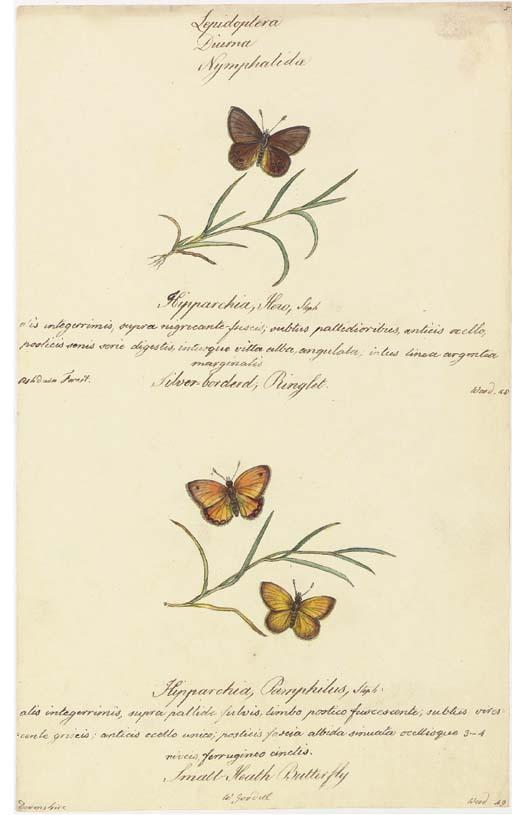 5
Lepidoptera
Diurna
Nymphalidæ
Hipparchia, Hero, Steph
alis integerrimis, supra nigricante-fuscis; subtus pallidioribus, anticis ocello,
posticis senis serie digestis, interque vitta alba, angulata, intus linea argentea
marginalis
Ashdown Forest.
Silver-borderd, Ringlet.
Wood. 48
Hipparchia, Pamphilus, Steph.
alis integerrimis, supra pallide fulvis, limbo postico fuscescente; subtus vires-
-cente griseis; anticis ocello unico; posticis fascia albida sinuata ocellisque 3-4
niveis ferrugineo cinctis.
Small Heath Butterfly
Devonshire
Wood 49